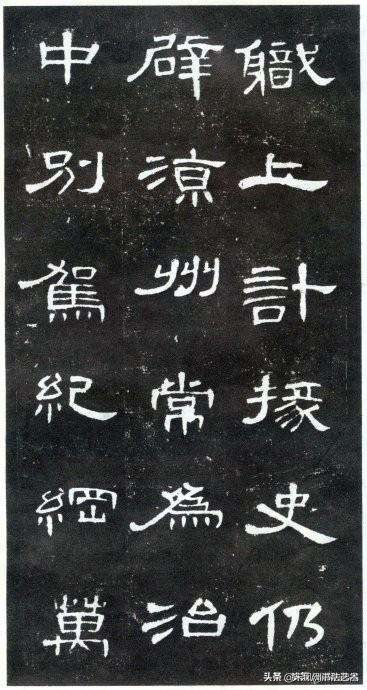 職上計掾史仍
辟涼州常為治
中別駕紀綱萬
头条